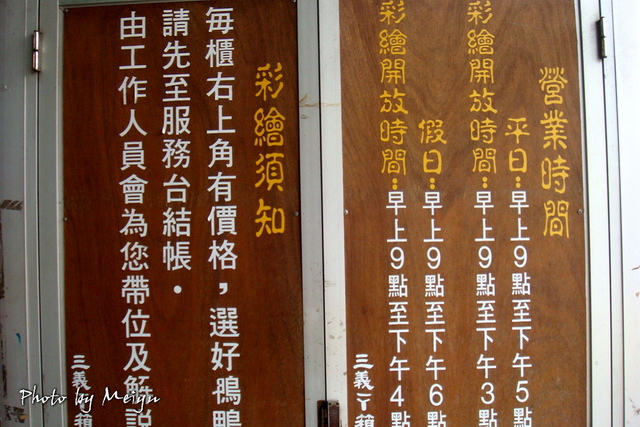 營業時間
平日：早上9點至下午5點
彩繪開放時間：早上9點至下午3點
假日：早上9點至下午6點
彩繪開放時間：早上9點至下午4點
三義丫
彩繪須知
每櫃右上角有價格，選好鴨
請先至服務台結帳。
由工作人員會為您帶位及解說
三義丫
Photo by Meigu